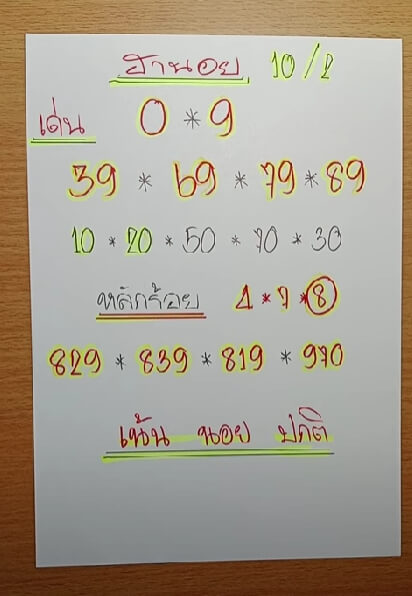 ฮานอย 10/2
เด่น 0 * 9
39 * 69 * 79 * 89
10 * 20 * 50 * 70 * 30
หลักร้อย 1 * 7 * 8
829 * 839 * 819 * 970
เน้น นอย ปกติ